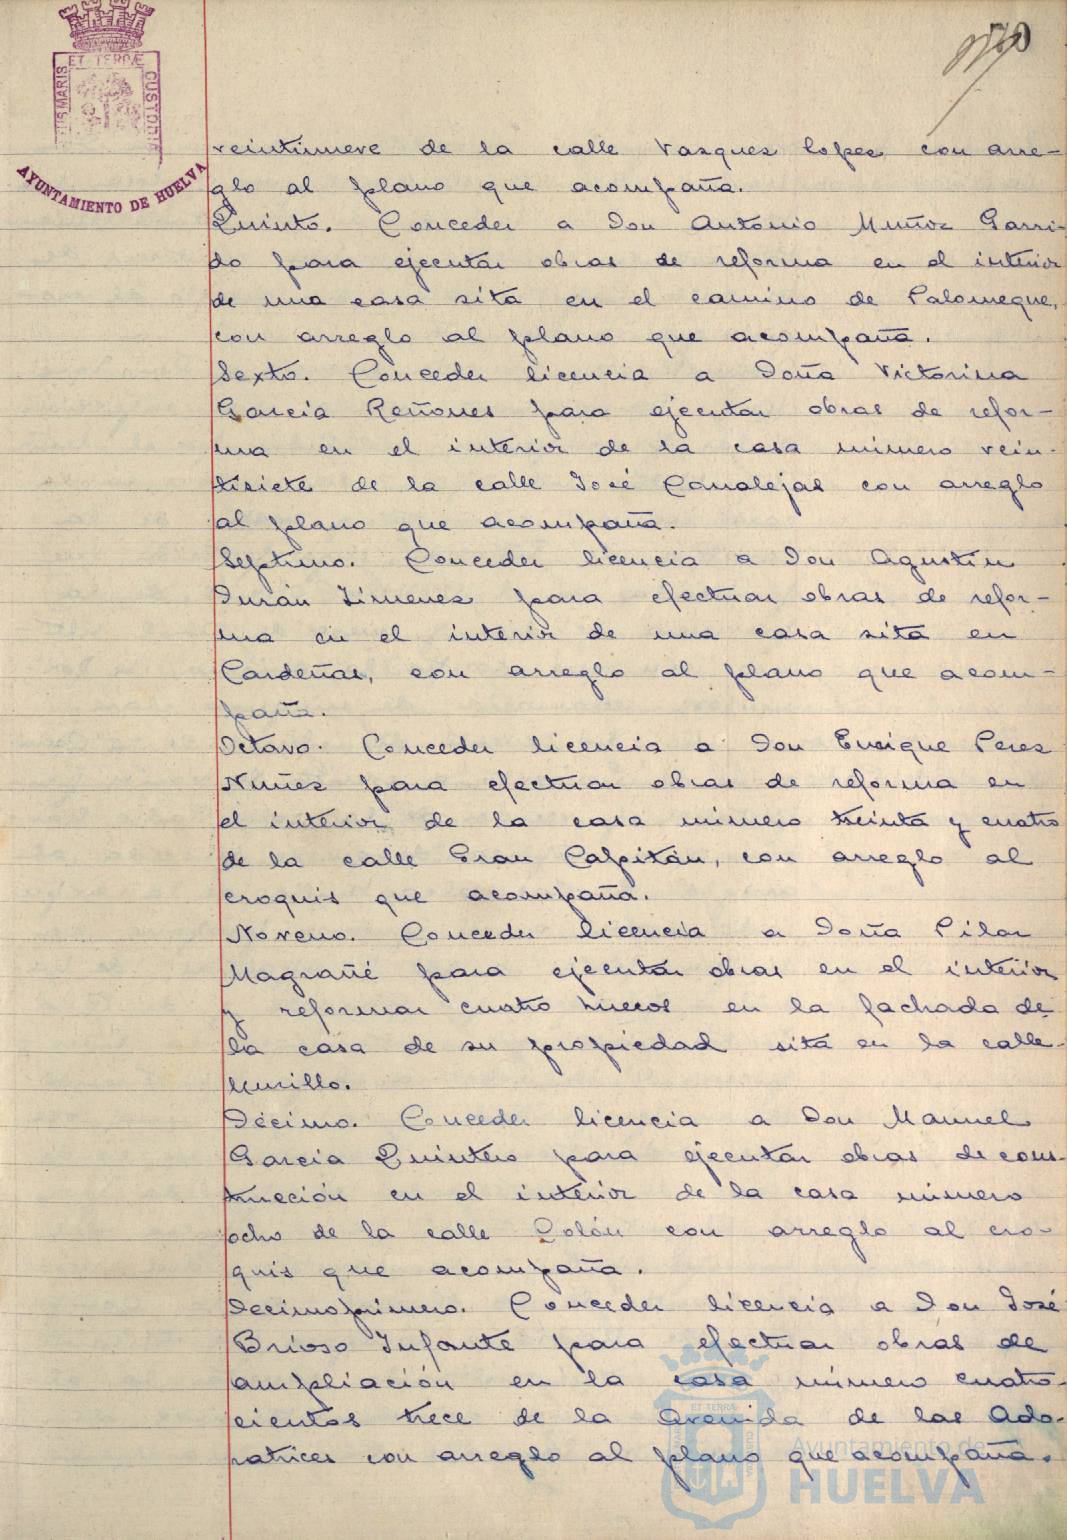 ET TERRÆ
CUSTODIA
AYUNTAMIENTO DE HUELVA
veintinueve de la calle Vazquez lopez con arre-
glo al plano que acompaña.
Quinto. Conceder a Don Antonio Muñoz Garri-
do para ejecutar obras de reforma en el interior
de una casa sita en el camino de Palomeque,
con arreglo al plano que acompaña.
Sexto. Conceder licencia a Doña Victorina
Garcia Reñones para ejecutar obras de refor-
ma en el interior de la casa número vein-
tisiete de la calle José Canalejas con arreglo
al plano que acompaña.
Septimo. Conceder licencia a Don Agustín
Durán Jimenez para efectuar obras de refor-
ma en el interior de una casa sita en
Cardeñas, con arreglo al plano que acom-
paña.
Octavo. Conceder licencia a Don Enrique Perez
Nuñez para efectuar obras de reforma en
el interior de la casa número treinta y cuatro
de la calle Gran Capitán, con arreglo al
croquis que acompaña.
Noveno. Conceder licencia a Doña Pilar
Magrañé para ejecutar obras en el interior
y reformar cuatro huecos en la fachada de
la casa de su propiedad sita en la calle
Murillo.
Décimo. Conceder licencia a Don Manuel
Garcia Quintero para ejecutar obras de cons-
trucción en el interior de la casa número
ocho de la calle Colón con arreglo al cro-
quis que acompaña.
Decimoprimero. Conceder licencia a Don José
Brioso Infante para efectuar obras de
ampliación en la casa número cuatro-
cientos trece de la Avenida de las Ado-
ratrices con arreglo al plano que acompaña.
Ayuntamiento de
HUELVA